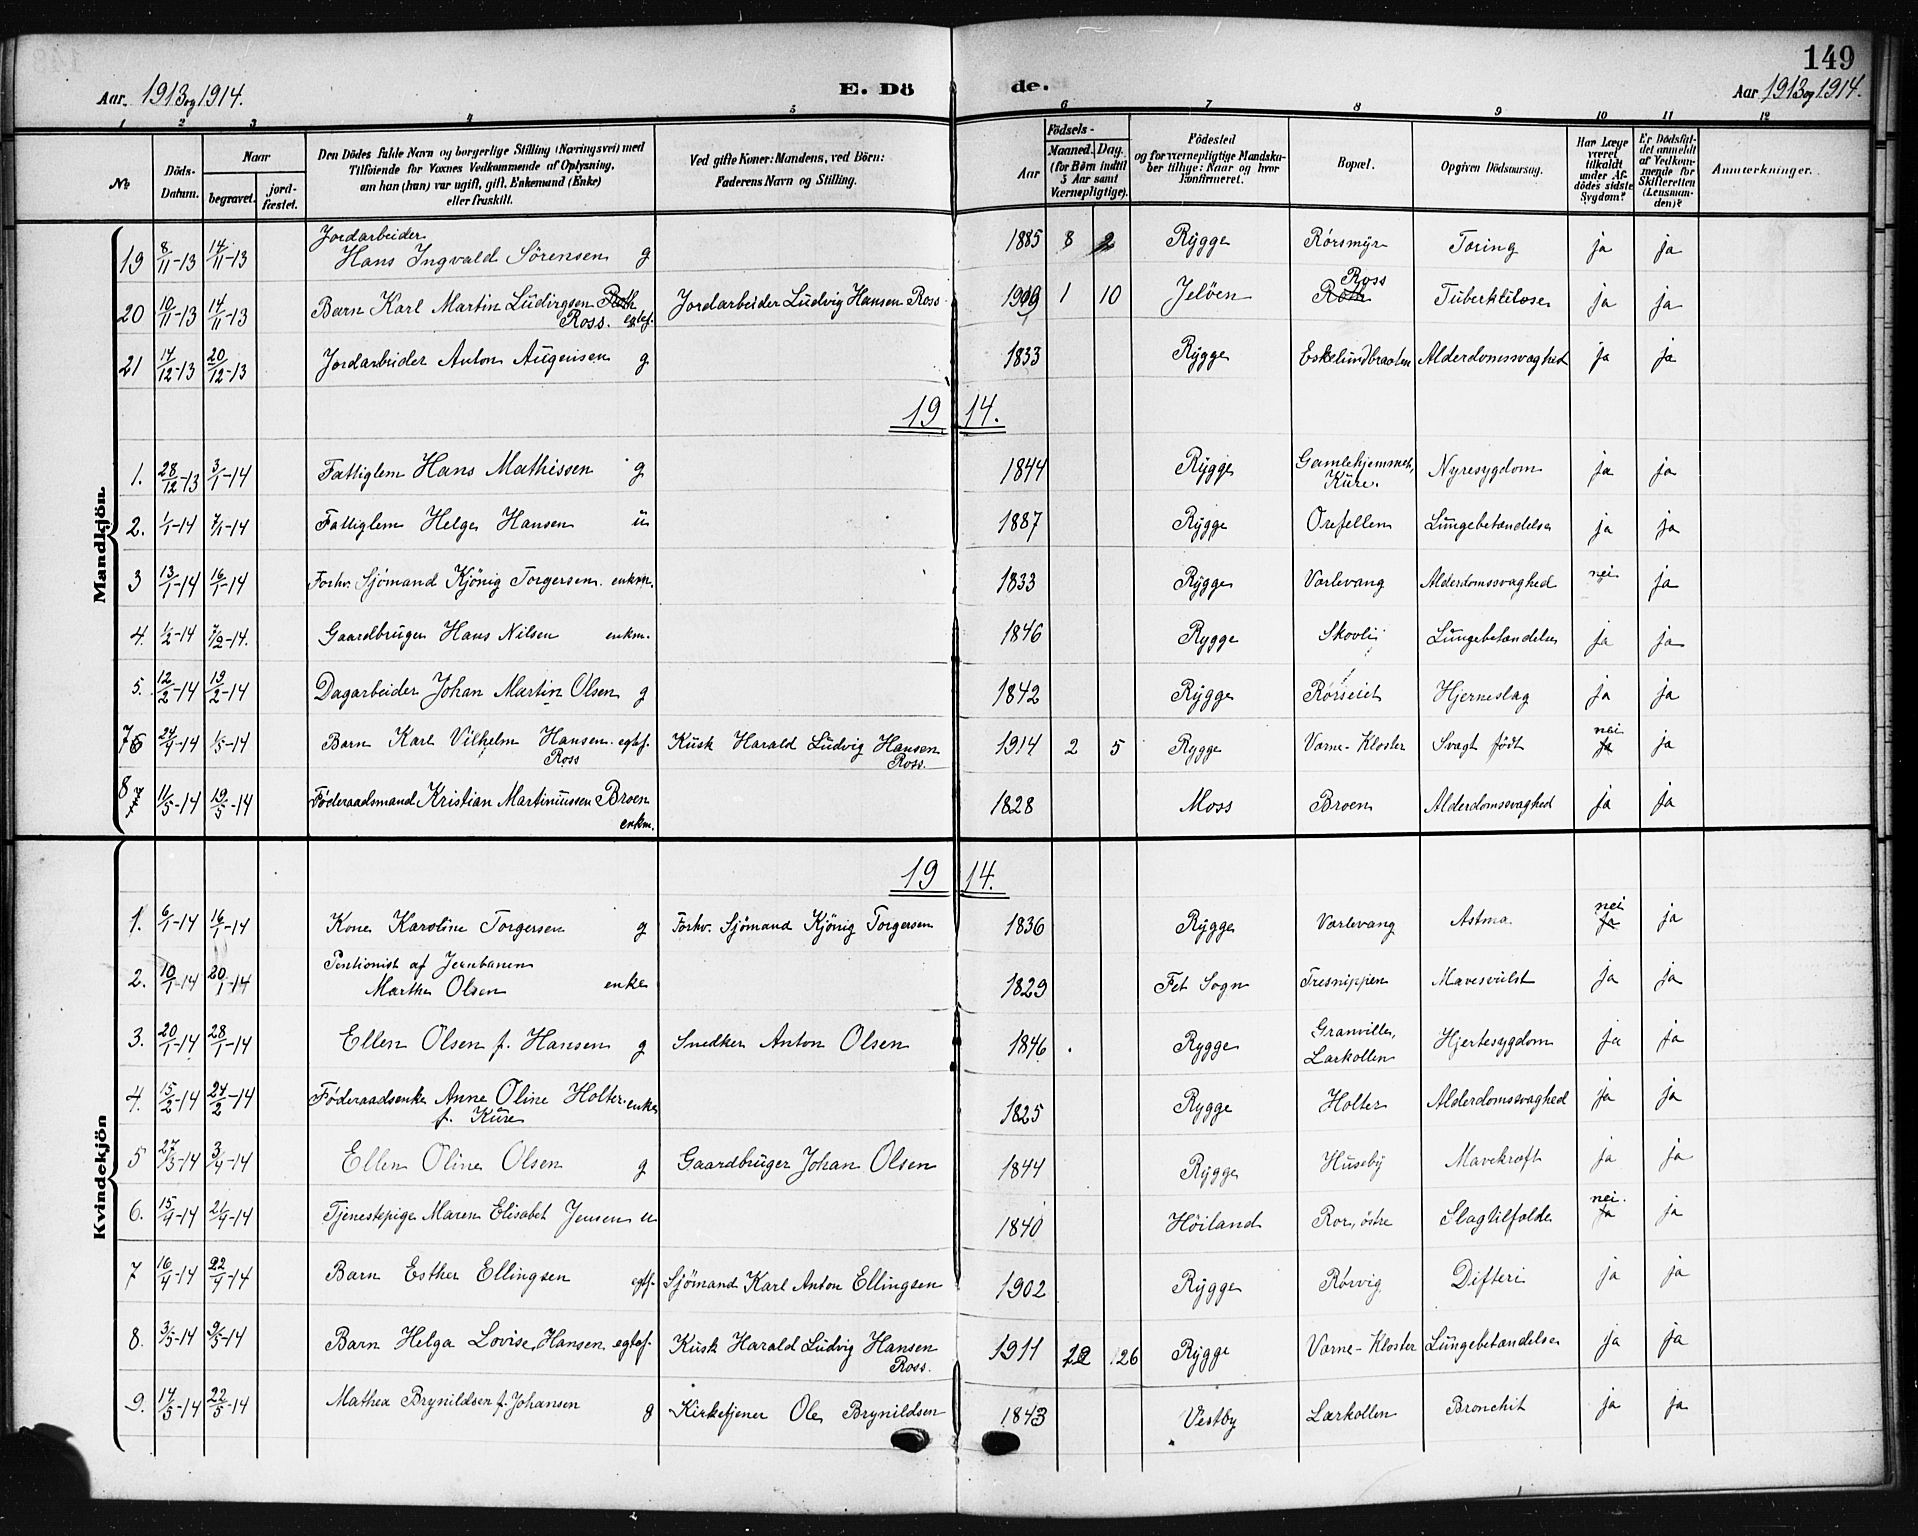 149
Aar. 1913 og 1914.
E. Dö
de.
Aar 1913 og 1914.
1 2 3 4 5 6 7 8 9 10 11 12
No
Döds-Datum.
Naar
begravet.
jord-fæstet.
Den Dödes fulde Navn og borgerlige Stilling (Næringsvei) med
Tilföiende for Voxnes Vedkommende af Oplysning,
om han (hun) var ugift, gift, Enkemand (Enke)
eller fraskilt.
Ved gifte Koner: Mandens, ved Börn:
Faderens Navn og Stilling.
Födsels-
Aar
Maaned. Dag.
(for Börn indtil
5 Aar samt
Værnepligtige).
Födested
og for værnepligtige Mandska-
ber tillige: Naar og hvor
Konfirmeret.
Bopæl.
Opgiven Dödsaarsag.
Har Læge
været
tilkaldt
under Af-
dödes sidste
Sygdom?
Er Dödsfal-
det anmeldt
af Vedkom-
mende for
Skifteretten
(Lensman-
den)?
Anmærkninger.
Mandkjön.
19 8/11-13 14/11-13 Jordarbeider
Hans Ingvald Sörensen g 1885 8 2 Rygge Rörsmyr Tæring ja ja
20 10/11-13 14/11-13 Barn Karl Martin Ludvigsen Roth Jordarbeider Ludvig Hansen Ross 1909 1 10 Jelöen Roth Ross Tuberkulose ja ja
Ross. egtef.
21 14/12-13 20/12-13 Jordarbeider Anton Augensen g 1833 Rygge Eskelundbraaten Alderdomssvaghed ja ja
19 14.
1. 28/12-13 3/1-14 Fattiglem Hans Mathissen g 1844 Rygge Gamlehjemmet, Kure. Nyresygdom ja ja
2. 1/1-14 7/1-14 Fattiglem Helge Hansen u 1887 Rygge Orefellen Lungebetændelse ja ja
3 13/1-14 16/1-14 Forhv. Sjömand Kjönig Torgersen. enkm. 1833 Rygge Varlevang Alderdomssvaghed nei ja
4. 1/2-14 7/2-14. Gaardbruger Hans Nilsen enkm. 1846 Rygge Skovli Lungebetændelse ja ja
5. 12/2-14 19/2-14 Dagarbeider Johan Martin Olsen g 1842 Rygge Rörseiet Hjerneslag ja ja
7 6 24/4-14 1/5-14 Barn Karl Vilhelm Hansen. egtef. Kusk Harald Ludvig Hansen 1914 2 5 Rygge Varne-Kloster Svagt födt nei ja ja
Ross Ross.
8 7 11/5-14 19/5-14 Föderaadsmand Kristian Martinussen Broen 1828 Moss Broen Alderdomssvaghed ja ja
enkm.
Kvindekjön
19 14.
1. 6/1-14 16/1-14 Kone Karoline Torgersen g Forhv. Sjömand Kjönig Torgersen 1836 Rygge Varlevang Astma. nei ja ja
2. 10/1-14 20/1-14 Pentionist af Jernbanen
Marthe Olsen enke 1829 Fet Sogn Tresnippen Mavesvulst ja ja
3. 20/1-14 28/1-14 Ellen Olsen f. Hansen g Snedker Anton Olsen 1846. Rygge Granville, Larkollen Hjertesygdom ja ja
4. 15/2-14 24/2-14 Föderaadsenke Anne Oline Holter. enke 1825 Rygge Holter Alderdomssvaghed ja ja
f. Kure
5 27/3-14 3/4-14 Ellen Oline Olsen g Gaardbruger Johan Olsen 1844 Rygge Huseby Mavekræft ja ja
6. 15/4-14 21/4-14 Tjenestepige Maren Elisabet Jensen u 1840 Höiland Ror, östre Slagtilfælde nei. ja ja
7 16/4-14 22/4-14 Barn Esther Ellingsen egtf. Sjömand Karl Anton Ellingsen 1902 Rygge Rörvig Difteri ja ja
8. 3/5-14 9/5-14 Barn Helga Lovise Hansen. egtef. Kusk Harald Ludvig Hansen 1911 12 26 Rygge Varne-Kloster Lungebetændelse ja ja
Ross.
9. 14/5-14 22/5-14 Mathea Brynildsen f. Johansen g Kirketjener Ole Brynildsen 1843 Vestby Larkollen Bronchit ja ja